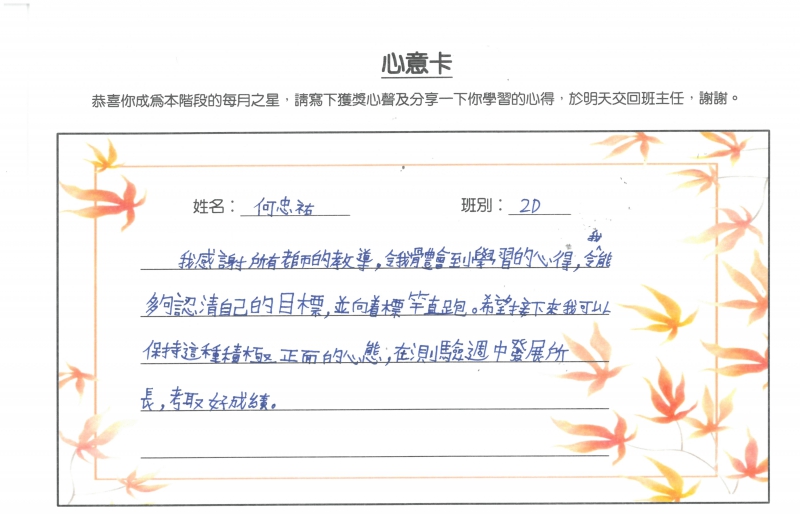 心意卡
恭喜你成為本階段的每月之星，請寫下獲獎心聲及分享一下你學習的心得，於明天交回班主任，謝謝。
姓名： 何忠祐 班別： 2D
我感謝所有老師的教導，令我體會到學習的心得，令我能
夠認清自己的目標，並向着標竿直跑。希望接下來我可以
保持這種積極正面的心態，在測驗週中發展所
長，考取好成績。